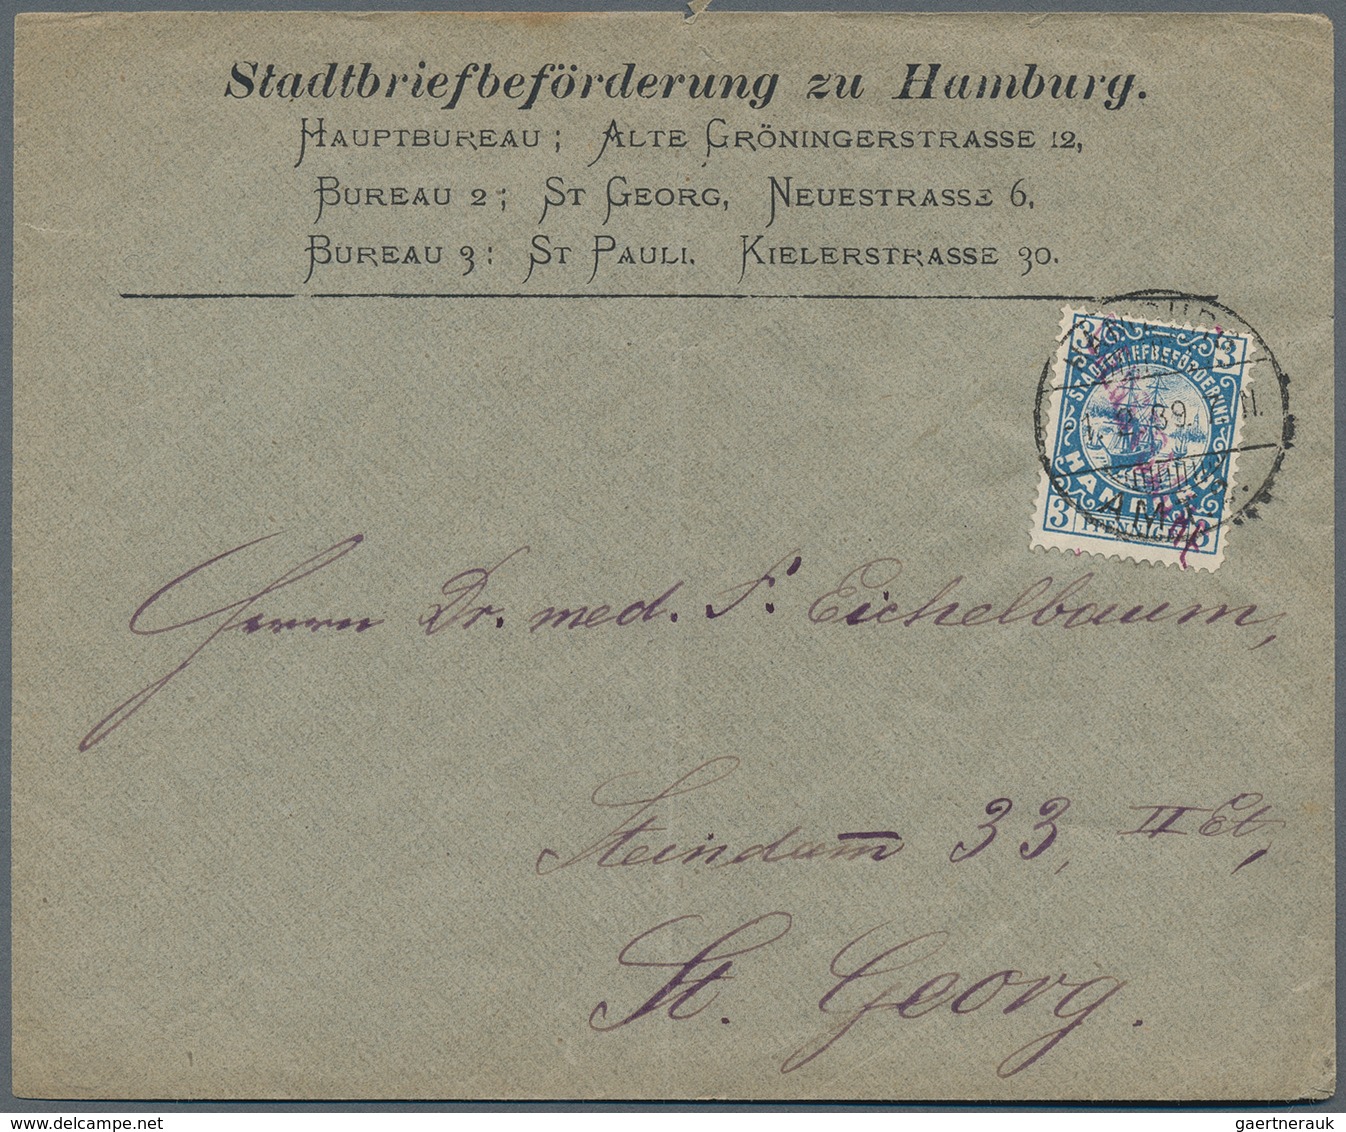 Stadtbriefbeförderung zu Hamburg.
HAUPTBUREAU; ALTE GRÖNINGERSTRASSE 12,
BUREAU 2; ST GEORG, NEUESTRASSE 6,
BUREAU 3: ST PAULI. KIELERSTRASSE 30.
3 3
STADTBRIEFBEFÖRDERUNG
HAMBURG
3 PFENNIGE 3
Herrn Dr. med. S. Eichelbaum,
Steindam̅ 33, II Et,
St. Georg.
gaertnerauk